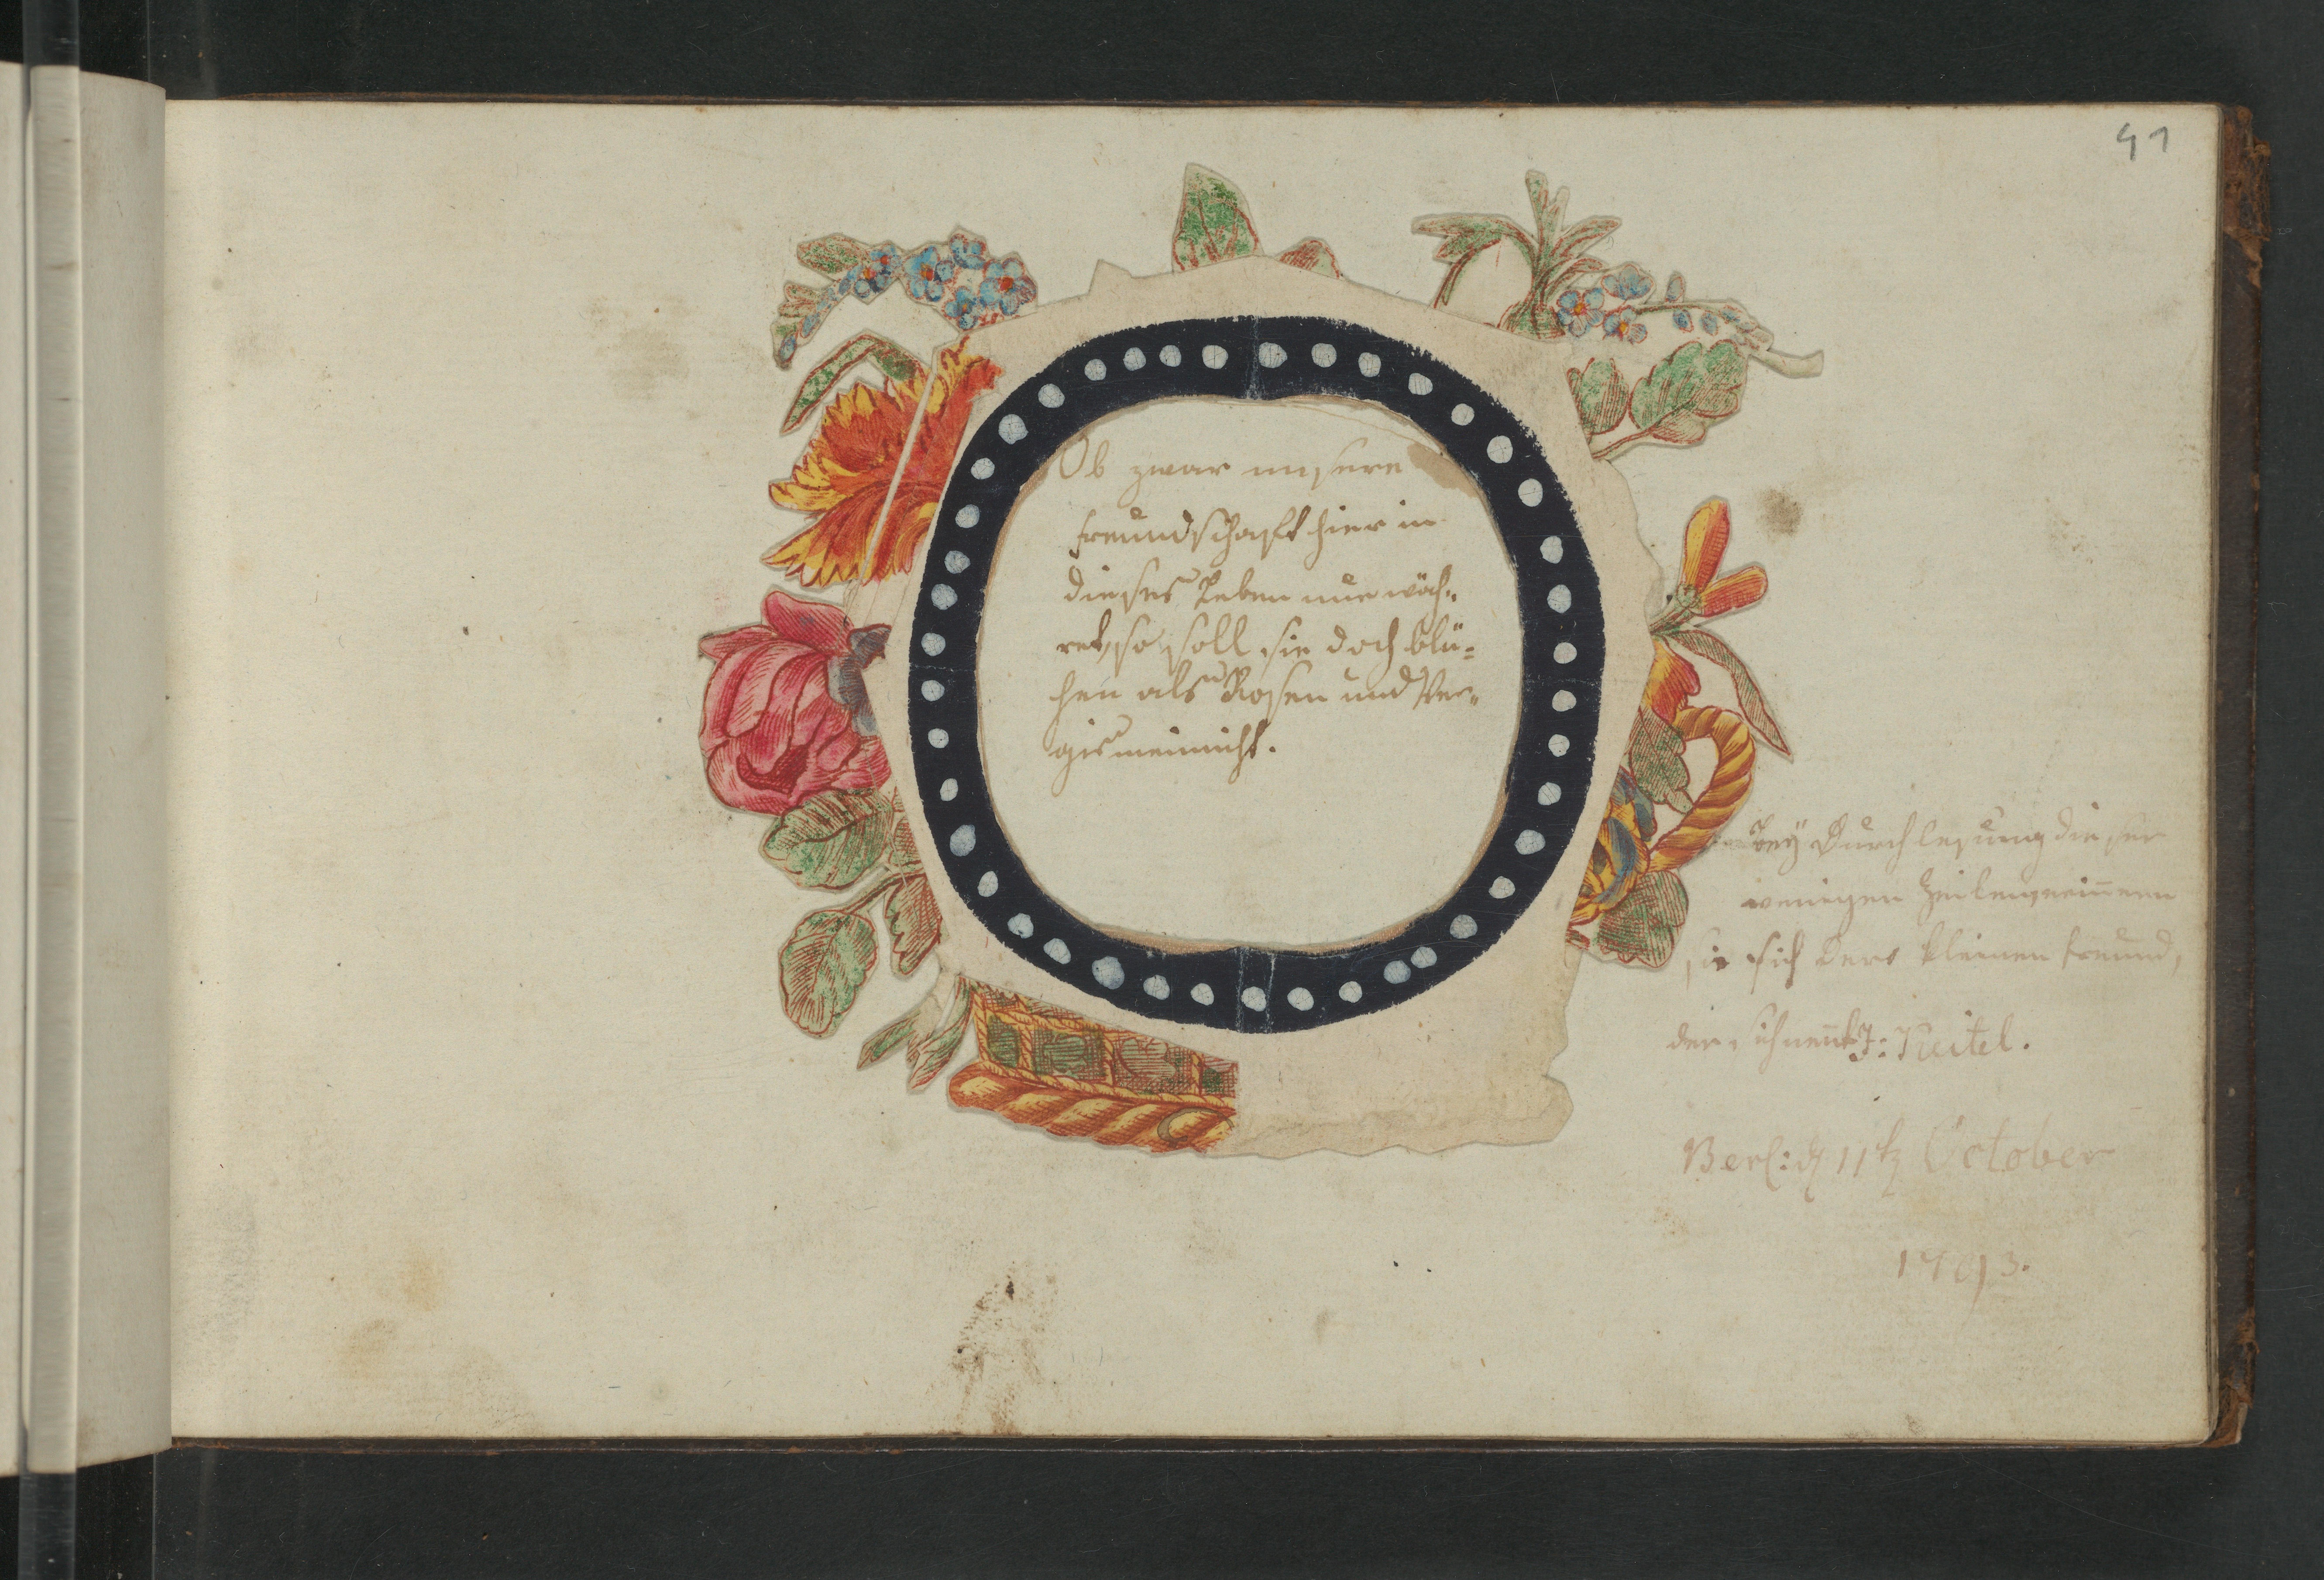 41
Ob zwar unsere
Freundschaft hier in
dieses Leben nur wäh„
ret, so soll sie doch blü=
hen als Rosen und Ver„
gismeinnicht.
Bey Durchlesung dieser
wenigen Zeilen erinnern
sie sich Dero kleinen Freund,
der sich nen̅t J: Keitel.
Berl: d 11t October
1793.